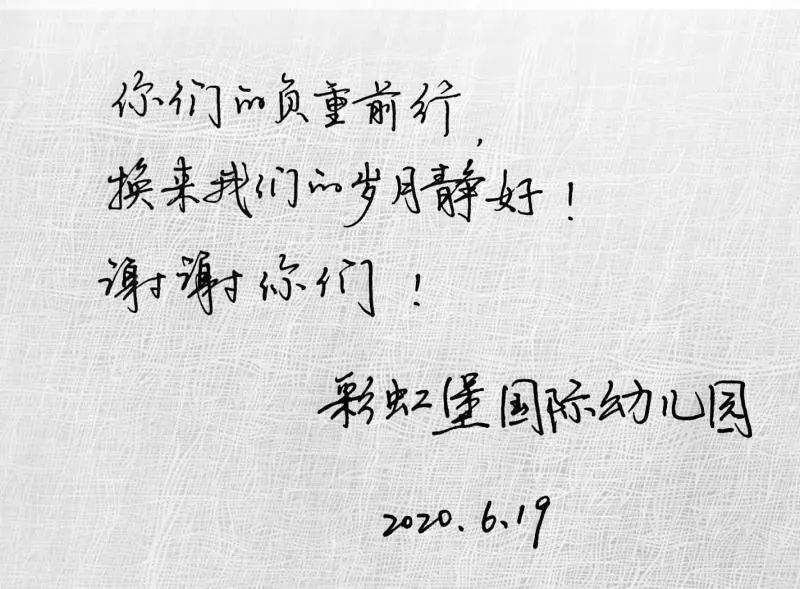 你们的负重前行，
换来我们的岁月静好！
谢谢你们！
彩虹堡国际幼儿园
2020.6.19